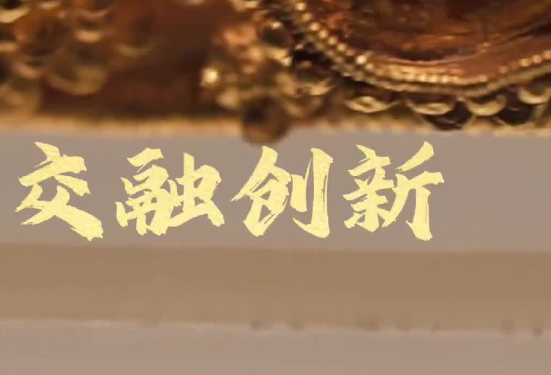 交融创新